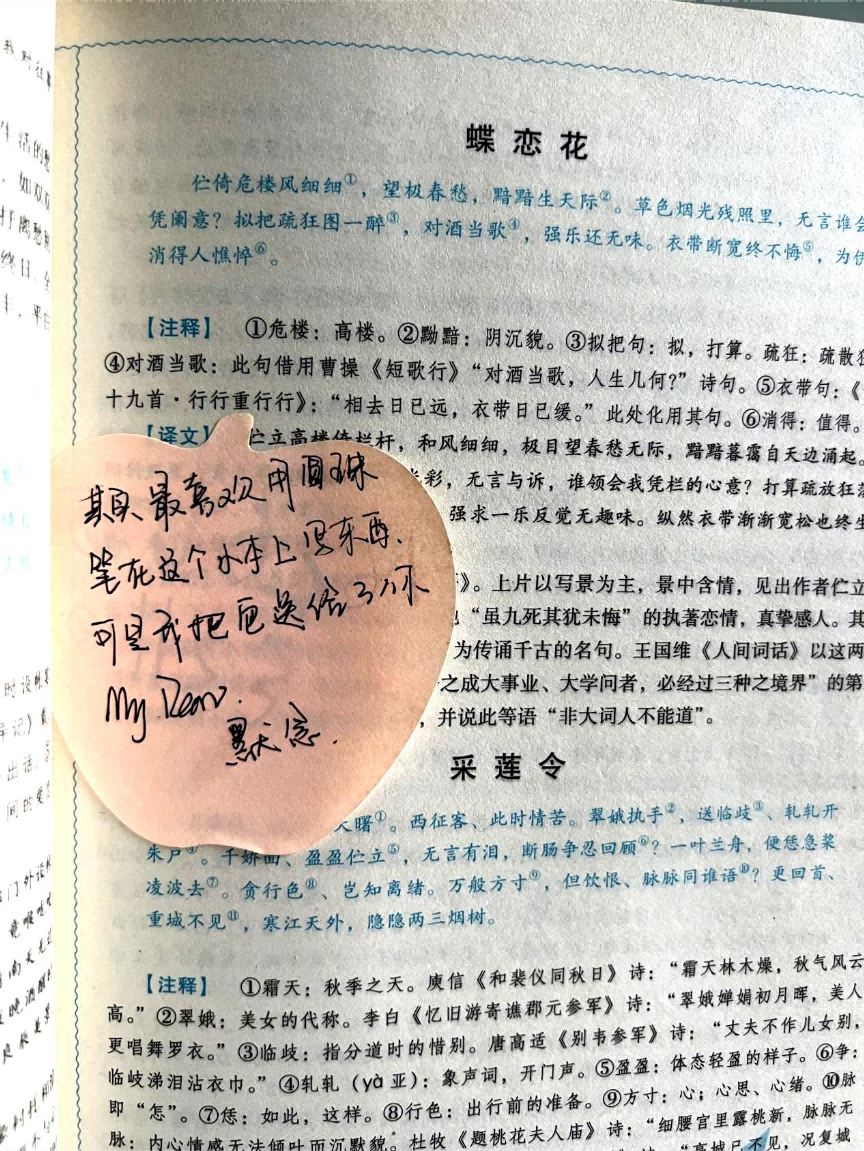 蝶恋花
伫倚危楼风细细①，望极春愁，黯黯生天际②。草色烟光残照里，无言谁会
凭阑意？拟把疏狂图一醉③，对酒当歌④，强乐还无味。衣带断宽终不悔⑤，为伊
消得人憔悴⑥。
【注释】 ①危楼：高楼。②黝黯：阴沉貌。③拟把句：拟，打算。疏狂：疏散狂
④对酒当歌：此句借用曹操《短歌行》“对酒当歌，人生几何？”诗句。⑤衣带句：《
十九首·行行重行行》：“相去日已远，衣带日已缓。”此处化用其句。⑥消得：值得。
【译文】 伫立高楼倚栏杆，和风细细，极目望春愁无际，黯黯暮霭自天边涌起。
光彩，无言与诉，谁领会我凭栏的心意？打算疏放狂荡
强求一乐反觉无趣味。纵然衣带渐渐宽松也终生
》。上片以写景为主，景中含情，见出作者伫立
“虽九死其犹未悔”的执著恋情，真挚感人。其
为传诵千古的名句。王国维《人间词话》以这两
之成大事业、大学问者，必经过三种之境界”的第
，并说此等语“非大词人不能道”。
其实最喜欢用圆珠
笔在这个小本上写东西、
可是我把它送给了你
My Dear.
默念.
采莲令
天曙①。西征客、此时情苦。翠娥执手②，送临歧③、轧轧开
朱户④。千娇面、盈盈伫立⑤，无言有泪，断肠争忍回顾⑥？一叶兰舟，便恁急桨
凌波去⑦。贪行色⑧、岂知离绪。万般方寸⑨，但饮恨、脉脉同谁语⑩？更回首、
重城不见⑪，寒江天外，隐隐两三烟树。
【注释】 ①霜天：秋季之天。庾信《和裴仪同秋日》诗：“霜天林木燥，秋气风云
高。”②翠娥：美女的代称。李白《忆旧游寄谯郡元参军》诗：“翠娥婵娟初月晖，美人
更唱舞罗衣。”③临歧：指分道时的惜别。唐高适《别韦参军》诗：“丈夫不作儿女别，
临岐涕泪沾衣巾。”④轧轧（yà 亚）：象声词，开门声。⑤盈盈：体态轻盈的样子。⑥争：
即“怎”。⑦恁：如此，这样。⑧行色：出行前的准备。⑨方寸：心；心思、心绪。⑩脉
脉：内心情感无法倾吐而沉默貌。杜牧《题桃花夫人庙》诗：“细腰宫里露桃新，脉脉无